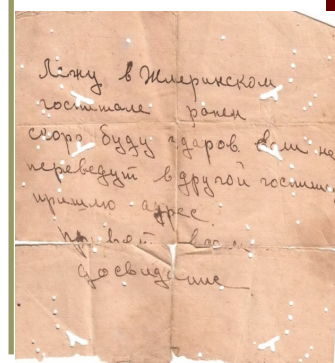 Лежу в Жмеринском
госпитале ранен
скоро буду здоров. Если не
переведут в другой госпиталь
пришлю адрес.
привет всем
досвидание